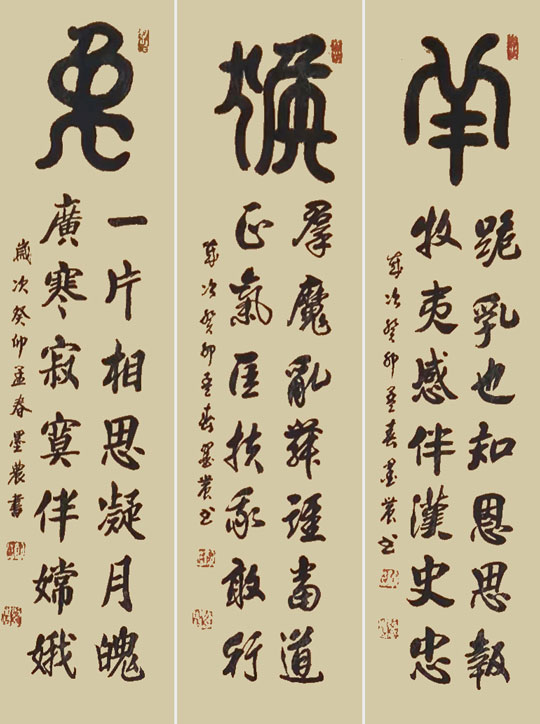 羊
跪乳也知恩思報
牧夷感伴漢史忠
歲次癸卯孟春墨農書
猴
羣魔亂舞誰當道
正氣匡扶我敢行
歲次癸卯孟春墨農書
兔
一片相思凝月魄
廣寒寂寞伴嫦娥
歲次癸卯孟春墨農書